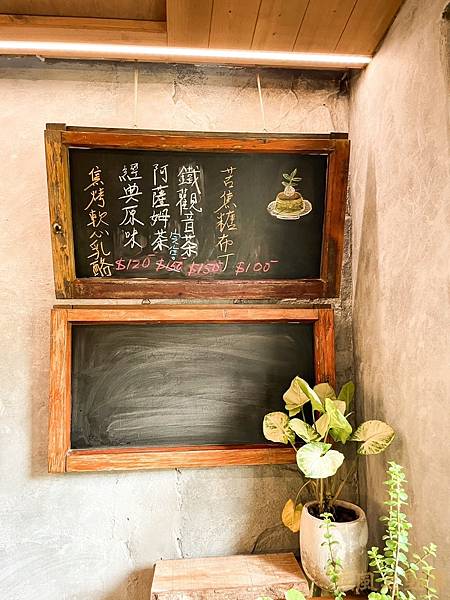 焦烤軟心乳酪
經典原味 $120
阿薩姆茶 $150
完售
鐵觀音茶 $150
苦焦糖布丁 $100